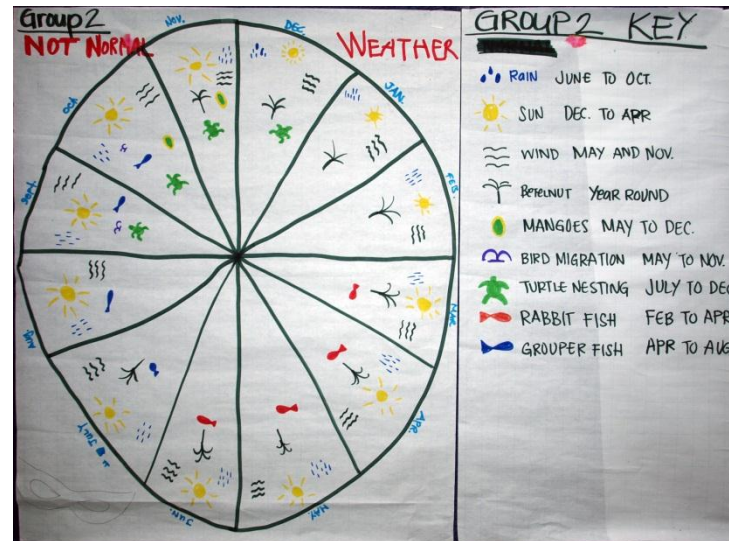 Group2
NOT NORMAL WEATHER
NOV.
DEC.
JAN.
FEB.
MAR.
APR.
MAY
JUN.
JULY
AUG.
SEPT.
OCT.
GROUP 2 KEY
RAIN JUNE TO OCT.
SUN DEC. TO APR
WIND MAY AND NOV.
BETELNUT YEAR ROUND
MANGOES MAY TO DEC.
BIRD MIGRATION MAY TO NOV.
TURTLE NESTING JULY TO DEC
RABBIT FISH FEB TO APR
GROUPER FISH APR TO AUG